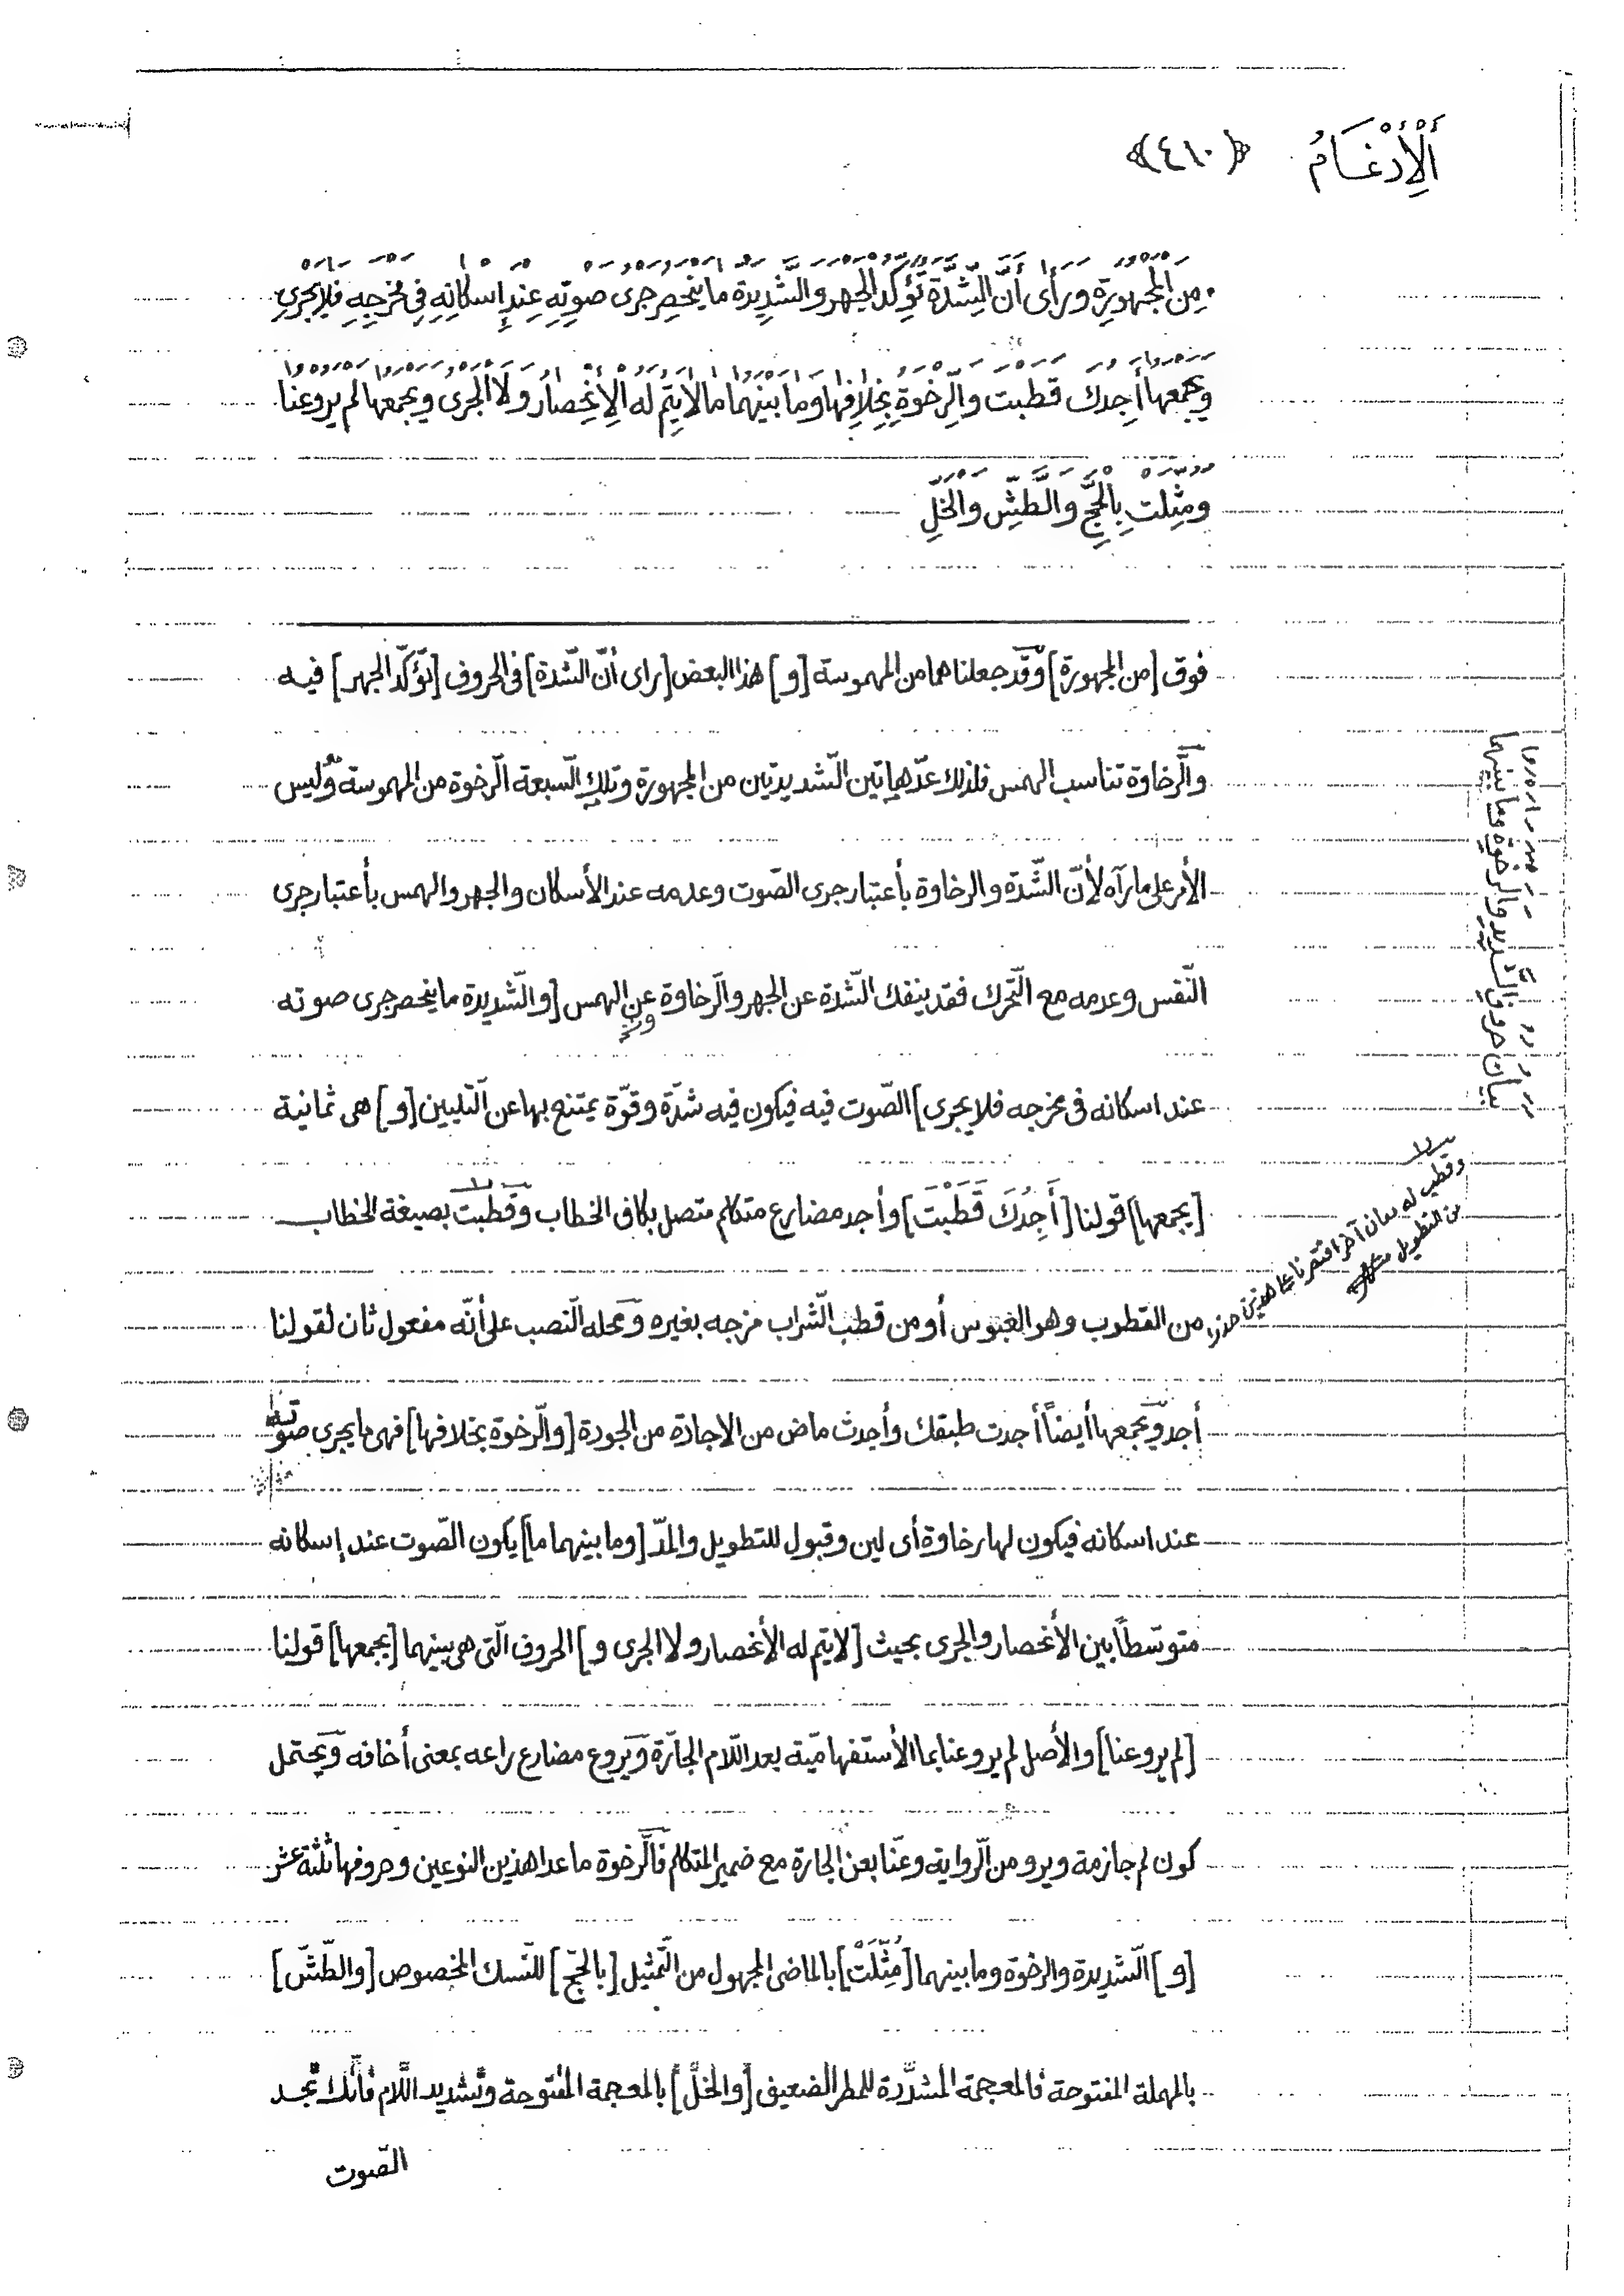 أَلْأِدْغَامُ ﴿٤١٠﴾
مِنَ الْمَجْهُورَةِ وَرَأى أَنَّ الشِّدَّةَ تُؤَكِّدُ الْجَهْرَ وَالشَّدِيدَةُ مَا يَنْحَصِرُ جَرْىُ صَوْتِهِ عِنْدَ إِسْكَانِهِ فِي مَخْرَجِهِ فَلَا يَجْرِى
وَيَجْمَعُهَا أَجِدُكَ قَطَبْتَ وَالرِّخْوَةُ بِخِلَافِهَا وَمَا بَيْنَهُمَا مَا لَا يَتِمُّ لَهُ الْأِنْحِصَارُ وَلَا الْجَرْىُ وَيَجْمَعُهَا لَمْ يَرْوِعُنَا
وَمُثِّلَتْ بِالْحَجِّ وَالطَّشِّ وَالْخَلِّ
فوق [من المجهورة] وقد جعلناهما من المهموسة [و] هذا البعض [رأى أنّ الشّدة] فى الحروف [تؤكّد الجهر] فيه
والرّخاوة تناسب الهمس فلذلك عدّ هاتين الشّديدتين من المجهورة وتلك السّبعة الرّخوة من المهموسة وليس
الأمر على ما رآه لأنّ الشّدّة والرخاوة بأعتبار جرى الصّوت وعدمه عند الأسكان والجهر والهمس بأعتبار جرى
النّفس وعدمه مع التّحرك فقد ينفك الشّدة عن الجهر والرّخاوة عن الهمس [والشّديدة ما ينحصر جرى صوته
عند اسكانه فى مخرجه فلا يجرى] الصّوت فيه فيكون فيه شدّة وقوّة يمتنع بها عن التّليين [و] هى ثمانية
[يجمعها] قولنا [أَجِدُكَ قَطَبْتَ] وأجد مضارع متكلم متصل بكاف الخطاب وقطبت بصيغة الخطاب
من القطوب وهو العبوس أو من قطب الشّراب مزجه بغيره ومحله النّصب على أنّه مفعول ثان لقولنا
أجد ويجمعها أيضاً أجدت طبقك وأجدت ماض من الاجادة من الجودة [والرّخوة بخلافها] فهى ما يجرى صوته
عند اسكانه فيكون لها رخاوة أى لين وقبول للتطويل والمدّ [وما بينهما ما] يكون الصّوت عند إسكانه
متوسّطاً بين الأنحصار والجرى بحيث [لا يتم له الأنحصار ولا الجرى و] الحروف الّتى هى بينهما [يجمعها] قولنا
[لم يروعنا] والأصل لم يروعنا بما الأستفهاميّة بعد اللّام الجارّة ويروع مضارع راعه بمعنى أخافه ويحتمل
كون لم جازمة ويرو من الرّواية وعنّا بعن الجارة مع ضمير المتكلم فالرّخوة ما عدا هذين النوعين وحروفها ثلثة عشر
[و] الشّديدة والرخوة وما بينهما [مُثِّلَتْ] بالماضى المجهول من التّمثيل [بالحجّ] للنّسك المخصوص [والطّشّ]
بالمهملة المفتوحة فالمعجمة المشدّدة للمطر الضعيف [والخلّ] بالمعجمة المفتوحة وتشديد اللّام فأنّك تجد
الصّوت
بيان حروف الشَّديد والرخوة وما بينهما
وقطب له معان آخر اقتصرنا على هذين حذرا
من التطويل